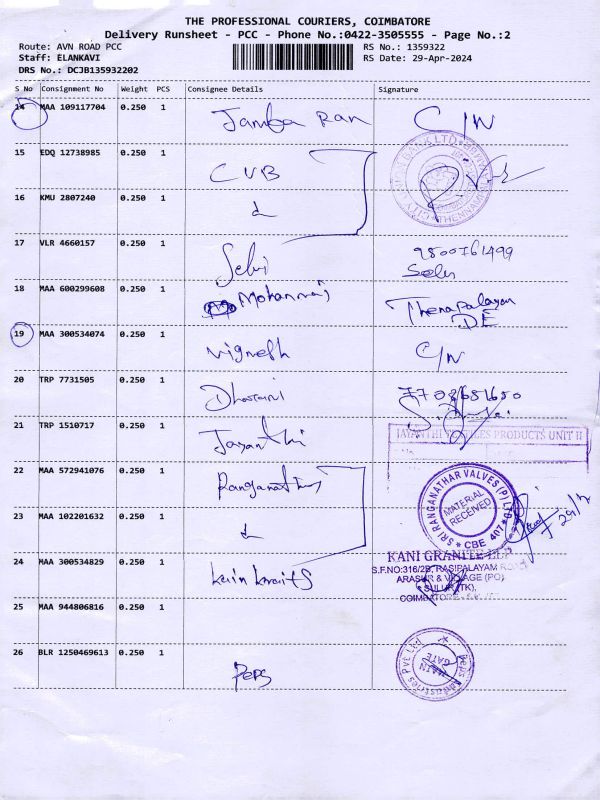 THE PROFESSIONAL COURIERS, COIMBATORE
Delivery Runsheet - PCC - Phone No.:0422-3505555 - Page No.:2
Route: AVN ROAD PCC
Staff: ELANKAVI
DRS No.: DCJB135932202
RS No.: 1359322
RS Date: 29-Apr-2024
S No Consignment No Weight PCS Consignee Details Signature
14 MAA 109117704 0.250 1 C/N
15 EDQ 12738985 0.250 1 CUB
16 KMU 2807240 0.250 1
17 VLR 4660157 0.250 1 Selvi 9500761499
18 MAA 600299608 0.250 1 Mohanraj
19 MAA 300534074 0.250 1 Vignesh C/N
20 TRP 7731505 0.250 1 Dharani 7708651650
21 TRP 1510717 0.250 1 Jayanthi
JAYANTHI TEXTILES PRODUCTS UNIT II
22 MAA 572941076 0.250 1 Ranganathar
SRI RANGANATHAR VALVES (P) LTD
MATERIAL
RECEIVED
CBE 407
23 MAA 102201632 0.250 1
24 MAA 300534829 0.250 1
KANI GRANITE
S.F.NO:316/2B, RASIPALAYAM
ARASUR & VILLAGE (PO)
SULUR (TK),
COIMBATORE
25 MAA 944806816 0.250 1
26 BLR 1250469613 0.250 1 Peps
Peps Industries Pvt Ltd
MAIN
GATE